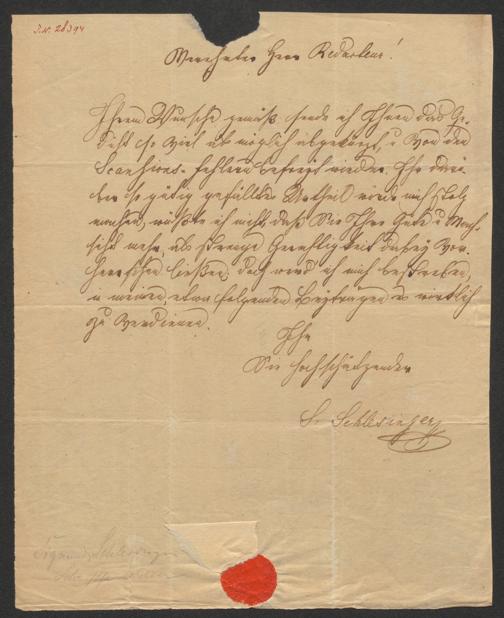 I.N. 28394
Verehrter Herr Redacteur!
Ihrem Wunsche gemäß sende ich Ihnen das Ge-
dicht so viel als möglich abgekürzt, u von den
Scansions-fehlern befreyt wieder. Ihr darü-
ber so gütig gefälltes Urtheil würde mich stolz
machen, wüßte ich nicht, daß Sie Ihre Güte u Nach-
sicht mehr, als strenge Gerechtigkeit dabey vor-
herrschen ließen, doch werd ich mich bestreben,
in meinen, etwa folgenden Beyträgen es wirklich
zu verdienen.
Ihr
Sie hochschätzender
S. Schlesinger
Sigmund Schlesinger